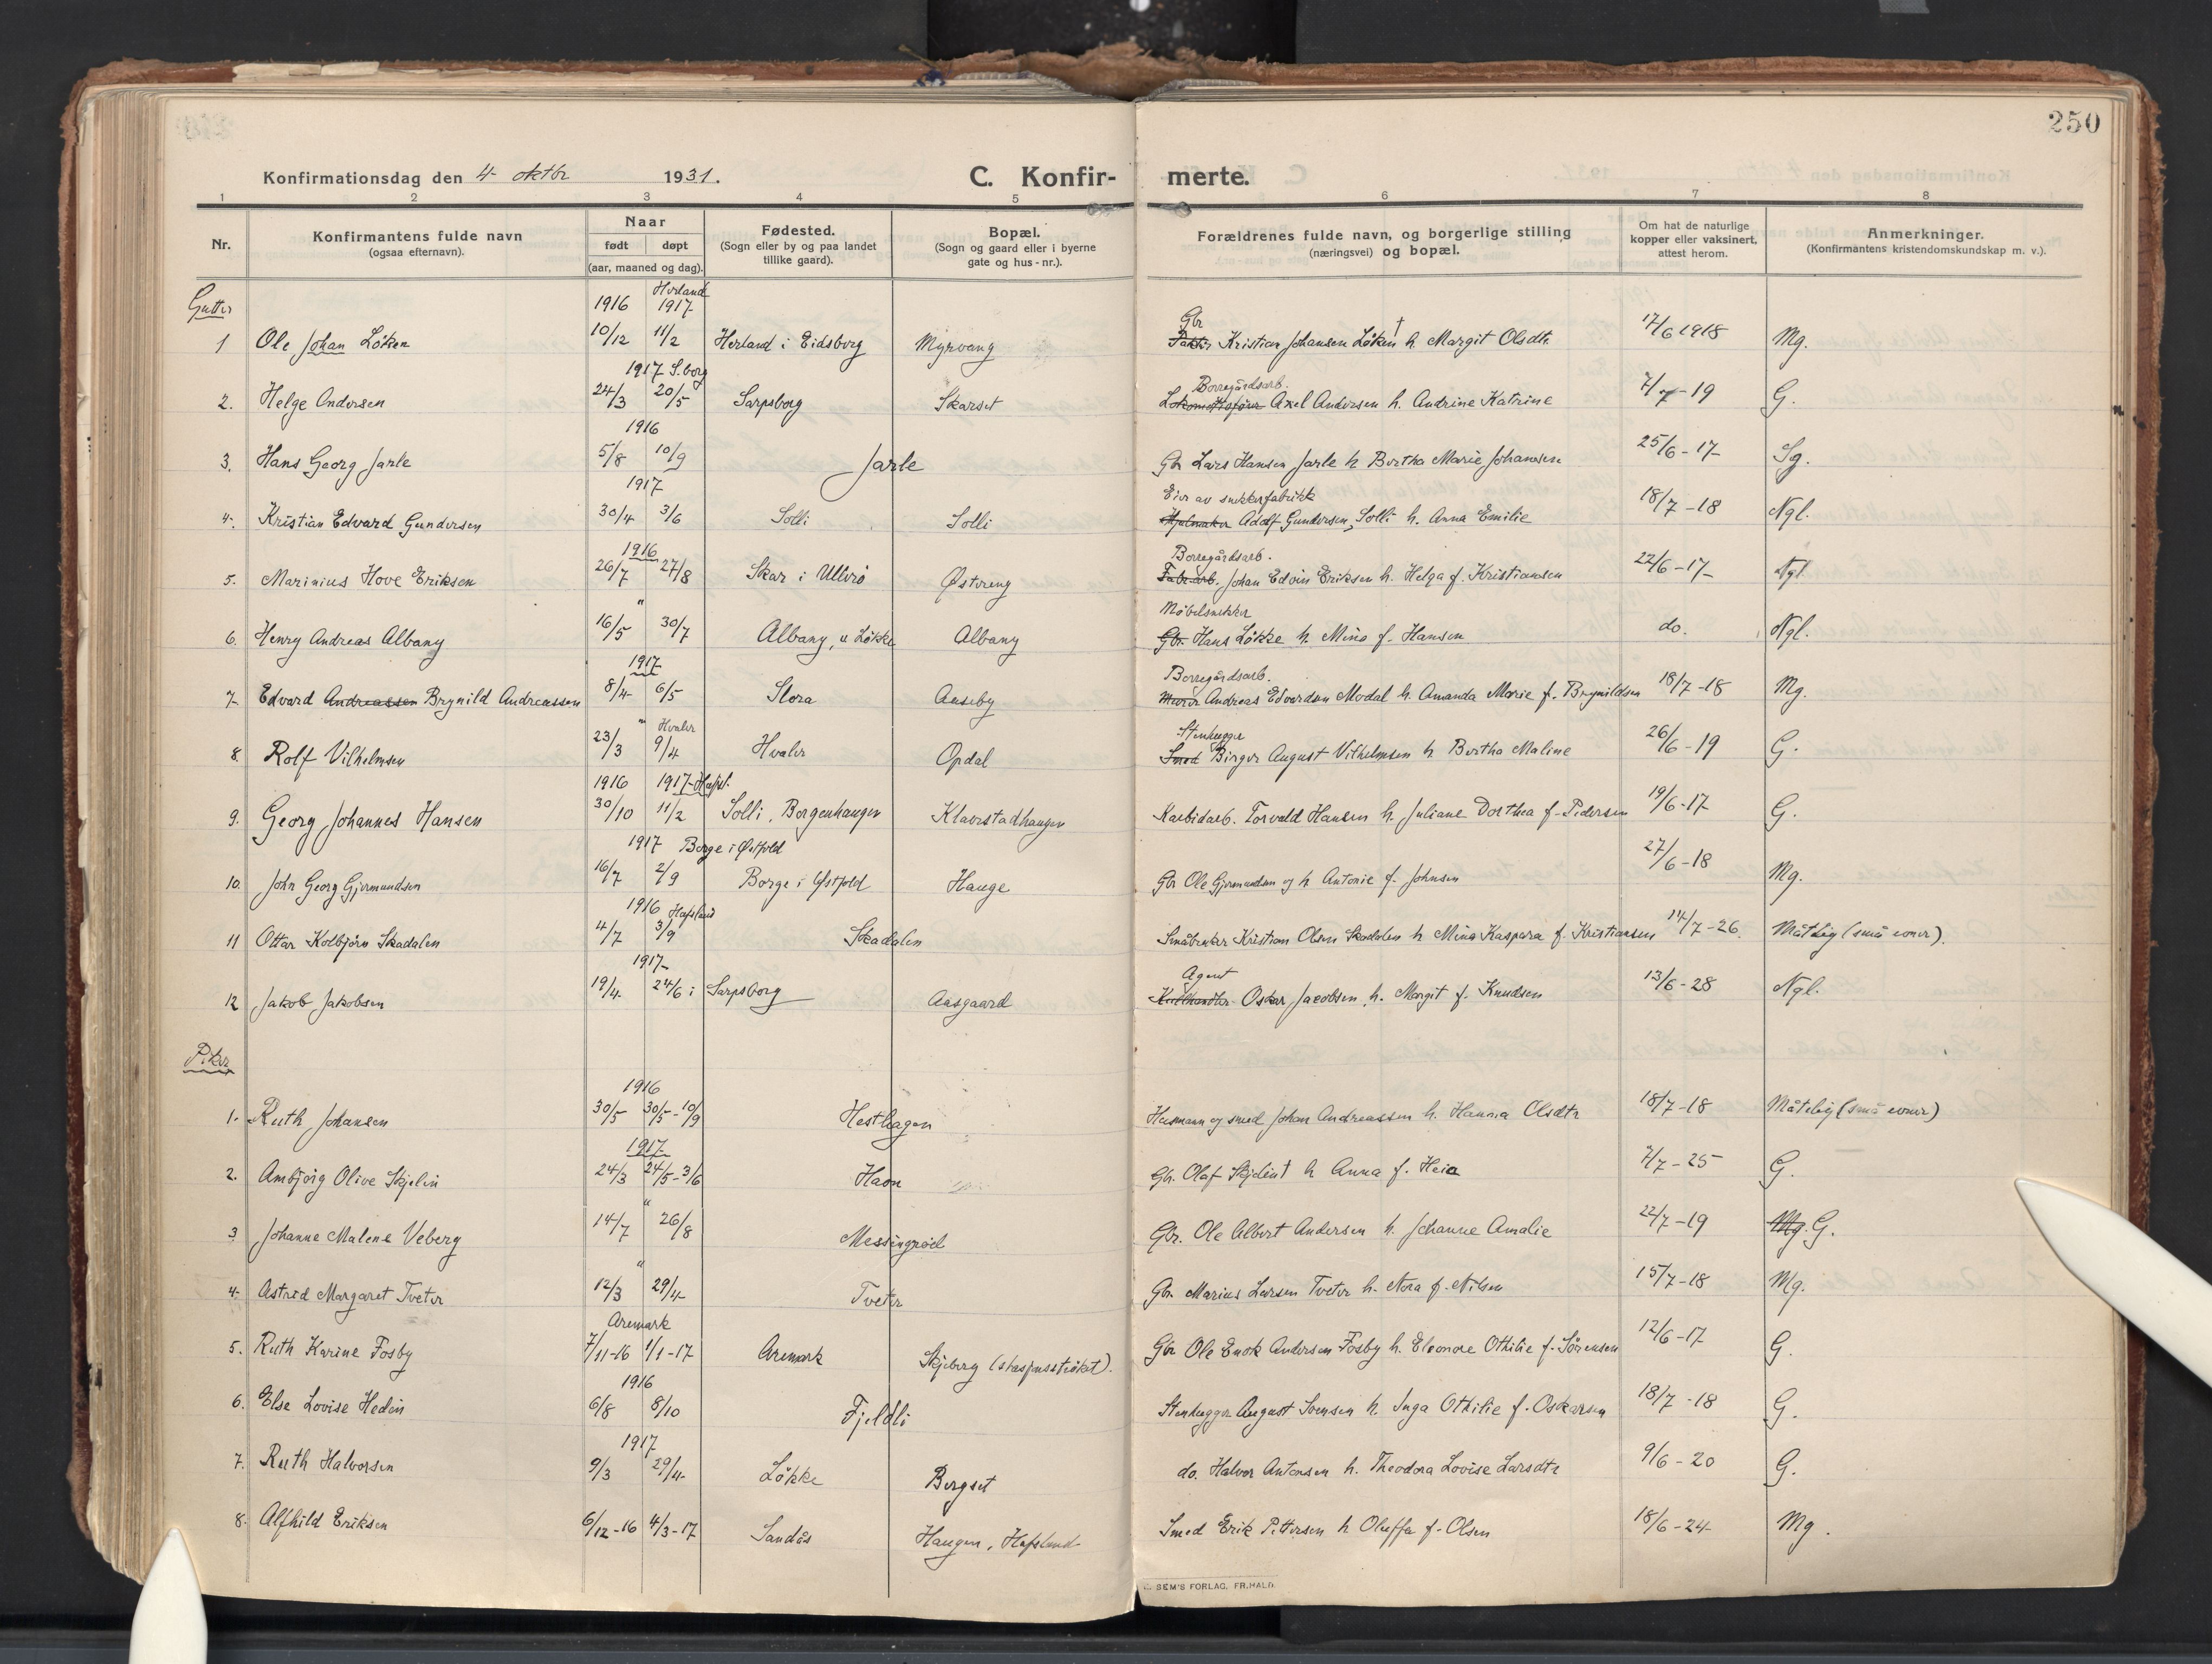 250
Konfirmationsdag den 4 oktbr 1931. C. Konfir- merte.
1 2 3 4 5 6 7 8
Nr. Konfirmantens fulde navn (ogsaa efternavn). Naar født døpt (aar, maaned og dag). Fødested. (Sogn eller by og paa landet tillike gaard). Bopæl. (Sogn og gaard eller i byerne gate og hus-nr.). Forældrenes fulde navn, og borgerlige stilling (næringsvei) og bopæl. Om hat de naturlige kopper eller vaksinert, attest herom. Anmerkninger. (Konfirmantens kristendomskundskap m. v.).
Gutter
1916 1917 Gbr
1 Ole Johan Löken 10/12 11/2 Herland i Eidsberg Myrvang Kristian Johansen Löken † h. Margit Olsdtr 17/6 1918 Mg.
1917 S.borg Borregårdsarb.
2. Helge Andersen 24/3 20/5 Sarpsborg Skarset Axel Andersen h. Andrine Katrine 7/7-19 G.
1916
3. Hans Georg Jarle 5/8 10/9 Jarle Gbr Lars Hansen Jarle h Bertha Marie Johansen 25/6-17 Sg.
1917 Eier av snekkerfabrikk
4. Kristian Edvard Gundersen 30/4 3/6 Solli Solli Hjulmaker Adolf Gundersen, Solli h. Anna Emilie 18/7-18 Ngl.
1916 Borregårdsarb.
5. Marinius Hove Eriksen 26/7 27/8 Skar i Ullerö Østreng Fabr.arb. Johan Edvin Eriksen h. Helga f. Kristiansen 22/6-17 Ngl.
" Möbelsnekker
6. Henry Andreas Albany 16/5 30/7 Albany, u Løkke Albany Gbr. Hans Løkke h. Mina f. Hansen do. Ngl.
1917 Borregårdsarb.
7. Edvard Andreassen Brynild Andreassen 8/4 6/5 Slora Aaseby Murer Andreas Edvardsen Modal h. Amanda Marie f. Brynildsen 18/7-18 Mg.
" Hvaler Stenhugger
8. Rolf Vilhelmsen 23/3 9/4 Hvaler Opdal Smed Birger August Vilhelmsen h Bertha Maline 26/6-19 G.
1916 1917 Hafsl.
9. Georg Johannes Hansen 30/10 11/2 Solli, Borgenhaugen Klavestadhaugen Karbidarb. Torvald Hansen h. Juliane Dorthea f. Pedersen 19/6-17 G.
1917 Borge i Østfold
10. John Georg Gjermundsen 16/7 2/9 Borge i Østfold Hauge Gbr Ole Gjermundsen og h Antonie f. Johnsen 27/6-18 Mg.
1916 Hafslund
11 Ottar Kolbjörn Skadalen 4/7 3/9 Skadalen Småbruker Kristian Olsen Skadalen h Mina Kaspara f. Kristiansen 14/7-26. Måtelig (små evner).
1917 Agent
12 Jakob Jakobsen 19/4 24/6 i Sarpsborg Aasgaard Oskar Jacobsen, h. Margit f. Knudsen 13/6-28 Ngl.
Piker
1916
1. Ruth Johansen 30/5 30/5-10/9 Hesthagen Husmann og smed Johan Andreassen h. Hanna Olsdtr 18/7-18 Måtelig (små evner)
1917
2. Ambjörg Olive Skjelin 24/3 24/5-3/6 Haon Gbr. Olaf Skjelin † h Anna f. Heia 7/7-25 G.
"
3 Johanne Malene Veberg 14/7 26/8 Messingröd Gbr. Ole Albert Andersen h. Johanne Amalie 22/7-19 Mg. G.
"
4. Astrid Margaret Tveter 12/3 29/4 Tveter Gbr. Marius Larsen Tveter h. Nora f. Nilsen 15/7-18 Mg.
Aremark
5. Ruth Karine Fosby 7/11-16 1/1-17 Aremark Skjeberg Gbr Ole Enok Andersen Fosby h. Eleonore Othilie f. Sörensen 12/6-17 G.
1916
6. Else Lovise Hedin 6/8 8/10 Fjeldli Stenhugger August Svensen h. Inga Othilie f. Oskarsen 18/7-18 G.
1917
7. Ruth Halvorsen 9/3 29/4 Løkke Bergset do. Halvor Antonsen h. Theodora Lovise Larsdtr 9/6-20 G.
8. Alfhild Eriksen 6/12-16 4/3-17 Sandås Haugen, Hafslund Smed Erik Pettersen h Oluffa f. Olsen 18/6-24 Mg.
SEM'S FORLAG, FR.HALD